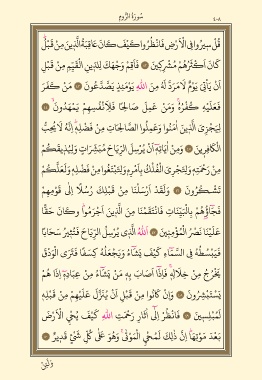 سُورَةُ الرُّومِ
٤٠٨
قُلْ سٖيرُوا فِي الْاَرْضِ فَانْظُرُوا كَيْفَ كَانَ عَاقِبَةُ الَّذٖينَ مِنْ قَبْلُؕ
كَانَ اَكْثَرُهُمْ مُشْرِكٖينَ ﴿٤٢﴾ فَاَقِمْ وَجْهَكَ لِلدّٖينِ الْقَيِّمِ مِنْ قَبْلِ
اَنْ يَأْتِيَ يَوْمٌ لَا مَرَدَّ لَهُ مِنَ اللّٰهِ يَوْمَئِذٍ يَصَّدَّعُونَ ﴿٤٣﴾ مَنْ كَفَرَ
فَعَلَيْهِ كُفْرُهُۚ وَمَنْ عَمِلَ صَالِحًا فَلِاَنْفُسِهِمْ يَمْهَدُونَۙ ﴿٤٤﴾
لِيَجْزِيَ الَّذٖينَ اٰمَنُوا وَعَمِلُوا الصَّالِحَاتِ مِنْ فَضْلِهٖؕ اِنَّهُ لَا يُحِبُّ
الْكَافِرٖينَ ﴿٤٥﴾ وَمِنْ اٰيَاتِهٖٓ اَنْ يُرْسِلَ الرِّيَاحَ مُبَشِّرَاتٍ وَلِيُذٖيقَكُمْ
مِنْ رَحْمَتِهٖ وَلِتَجْرِيَ الْفُلْكُ بِاَمْرِهٖ وَلِتَبْتَغُوا مِنْ فَضْلِهٖ وَلَعَلَّكُمْ
تَشْكُرُونَ ﴿٤٦﴾ وَلَقَدْ اَرْسَلْنَا مِنْ قَبْلِكَ رُسُلًا اِلٰى قَوْمِهِمْ
فَجَٓاؤُ۫هُمْ بِالْبَيِّنَاتِ فَانْتَقَمْنَا مِنَ الَّذٖينَ اَجْرَمُواؕ وَكَانَ حَقًّا
عَلَيْنَا نَصْرُ الْمُؤْمِنٖينَ ﴿٤٧﴾ اَللّٰهُ الَّذٖي يُرْسِلُ الرِّيَاحَ فَتُثٖيرُ سَحَابًا
فَيَبْسُطُهُ فِي السَّمَٓاءِ كَيْفَ يَشَٓاءُ وَيَجْعَلُهُ كِسَفًا فَتَرَى الْوَدْقَ
يَخْرُجُ مِنْ خِلَالِهٖۚ فَاِذَٓا اَصَابَ بِهٖ مَنْ يَشَٓاءُ مِنْ عِبَادِهٖٓ اِذَا هُمْ
يَسْتَبْشِرُونَ ﴿٤٨﴾ وَاِنْ كَانُوا مِنْ قَبْلِ اَنْ يُنَزَّلَ عَلَيْهِمْ مِنْ قَبْلِهٖ
لَمُبْلِسٖينَ ﴿٤٩﴾ فَانْظُرْ اِلٰٓى اٰثَارِ رَحْمَتِ اللّٰهِ كَيْفَ يُحْيِ الْاَرْضَ
بَعْدَ مَوْتِهَاؕ اِنَّ ذٰلِكَ لَمُحْيِ الْمَوْتٰىۚ وَهُوَ عَلٰى كُلِّ شَيْءٍ قَدٖيرٌ ﴿٥٠﴾
وَلَئِنْ